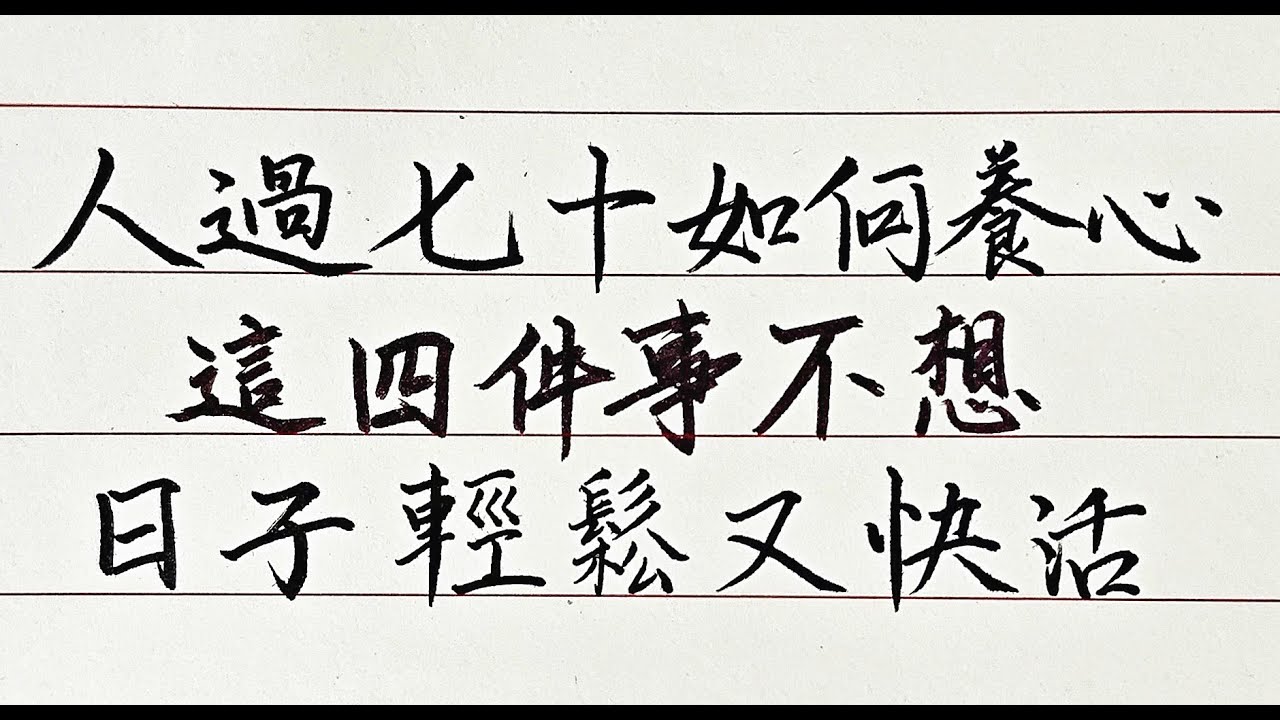 人過七十如何養心
這四件事不想
日子輕鬆又快活